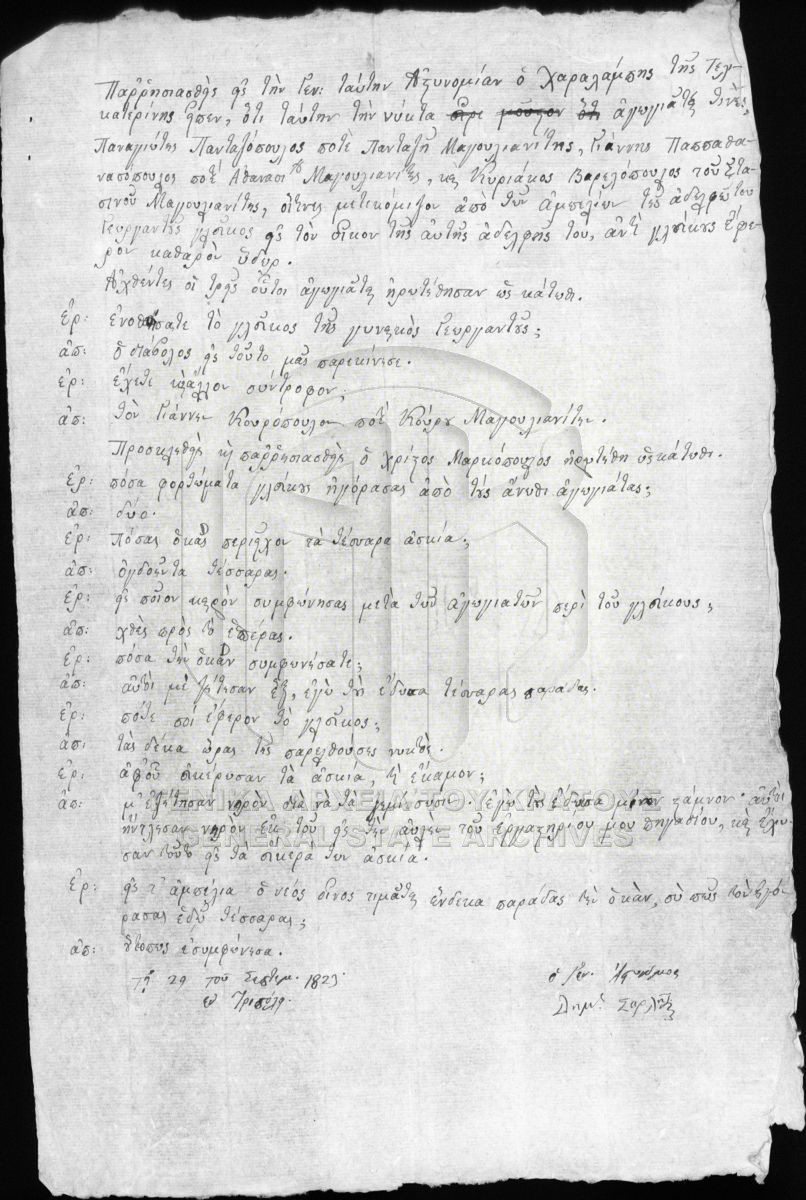 Παῤῥησιασθεὶς εἰς τὴν Γεν: ταύτην Ἀστυνομίαν ὁ Χαραλάμπης τῆς
κατερίνης εἶπεν, ὅτι ταύτην τὴν νύκτα ἀγωγιάται τινὲς,
Παναγιώτης Πανταζόπουλος ποτὲ Πανταζῆ Μαγουλιανίτης, Γιάννης Παππαθα-
νασόπουλος ποτὲ Ἀθανασίου Μαγουλιανίτης, καὶ Κυριάκος Βαρελόπουλος τοῦ Στα-
σινοῦ Μαγουλιανίτης, οἵτινες μετεκόμιζον ἀπὸ τῶν ἀμπελίων τῆς ἀδελφῆς του
Γεωργαντοῦς γλεῦκος εἰς τὸν οἶκον τῆς αὐτῆς ἀδελφῆς του, ἀντὶ γλεύκους ἔφε-
ρον καθαρὸν ὕδωρ.
Ἀχθέντες οἱ τρεῖς οὗτοι ἀγωγιάται ἠρωτήθησαν ὡς κάτωθι.
ἐρ: ἐνοθεύσατε τὸ γλεῦκος τῆς γυναικὸς Γεωργαντοῦς;
ἀπ: ὁ διάβολος εἰς τοῦτο μᾶς παρεκίνησε.
ἐρ: ἔχετε καὶ ἄλλον σύντροφον;
ἀπ: τὸν Γιάννην Κουρόπουλον ποτὲ Κούρου Μαγουλιανίτην.
Προσκληθεὶς καὶ παῤῥησιασθεὶς ὁ Χρίστος Μαρκόπουλος ἠρωτήθη ὡς κάτωθι.
ἐρ: πόσα φορτώματα γλεύκους ἠγόρασας ἀπὸ τοὺς ἄνωθι ἀγωγιάτας;
ἀπ: δύο.
ἐρ: Πόσας ὀκάδας περιεῖχον τὰ τέσσαρα ἀσκία;
ἀπ: ὀγδοῆντα τέσσαρας.
ἐρ: εἰς ποῖον καιρὸν συμφώνησας μετὰ τῶν ἀγωγιατῶν περὶ τοῦ γλεύκους;
ἀπ: χθὲς πρὸς τὸ ἑσπέρας.
ἐρ: πόσα τὴν ὀκὰν συμφωνήσατε;
ἀπ: αὐτοὶ μὲ ζήτησαν ἓξ, ἐγὼ τοὺς ἔδωσα τέσσαρας παράδας.
ἐρ: πότε σοὶ ἔφερον τὸ γλεῦκος;
ἀπ: τὰς δέκα ὥρας τῆς παρελθούσης νυκτός.
ἐρ: ἀφοῦ ἐκένωσαν τὰ ἀσκία, τί ἔκαμον;
ἀπ: μ' ἐζήτησαν νερὸν διὰ νὰ τὰ γεμίσωσι. ἐγὼ τοὺς ἔδωσα μόνον στάμνον. αὐτοὶ
ἤντλησαν νερὸν ἐκ τοῦ εἰς τὴν αὐλὴν τοῦ ἐργαστηρίου μου πηγαδίου, καὶ ἔχυ-
σαν τοῦτο εἰς τὰ τῶν ἀσκία.
ἐρ: εἰς τ' ἀμπέλια ὁ νέος οἶνος τιμᾶται ἕνδεκα παράδας τὴν ὀκὰν, σὺ πῶς τὸν ἠγό-
ρασας ἐδῶ τέσσαρας;
ἀπ: οὕτω πως ἐσυμφώνησα.
τῇ 29 τοῦ Σεπτεμ. 1823.
ἐν Τριπόλει.
ὁ Γεν. Ἀστυνόμος
Δημ:
ΓΕΝΙΚΑ ΑΡΧΕΙΑ ΤΟΥ ΚΡΑΤΟΥΣ
GENERAL STATE ARCHIVES